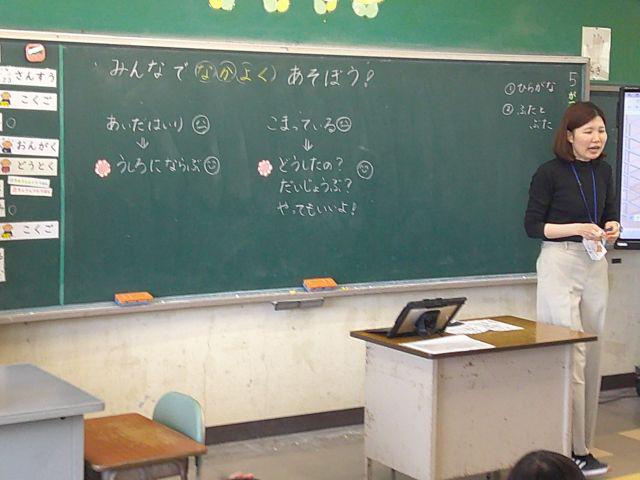 みんなで なかよく あそぼう!
あいだはいり
⇓
うしろにならぶ
こまっている
⇓
どうしたの?
だいじょうぶ?
やってもいいよ!
①ひらがな
②ふたと
ぶた
5
さんすう
こくご
おんがく
どうとく
こくご